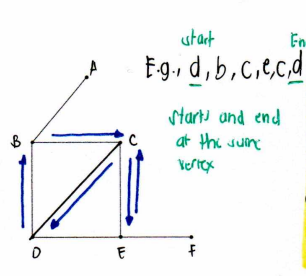 start
En
E.g., d, b, c, e, c, d
starts and end
at the same
vertex
A
B
C
D
E
F